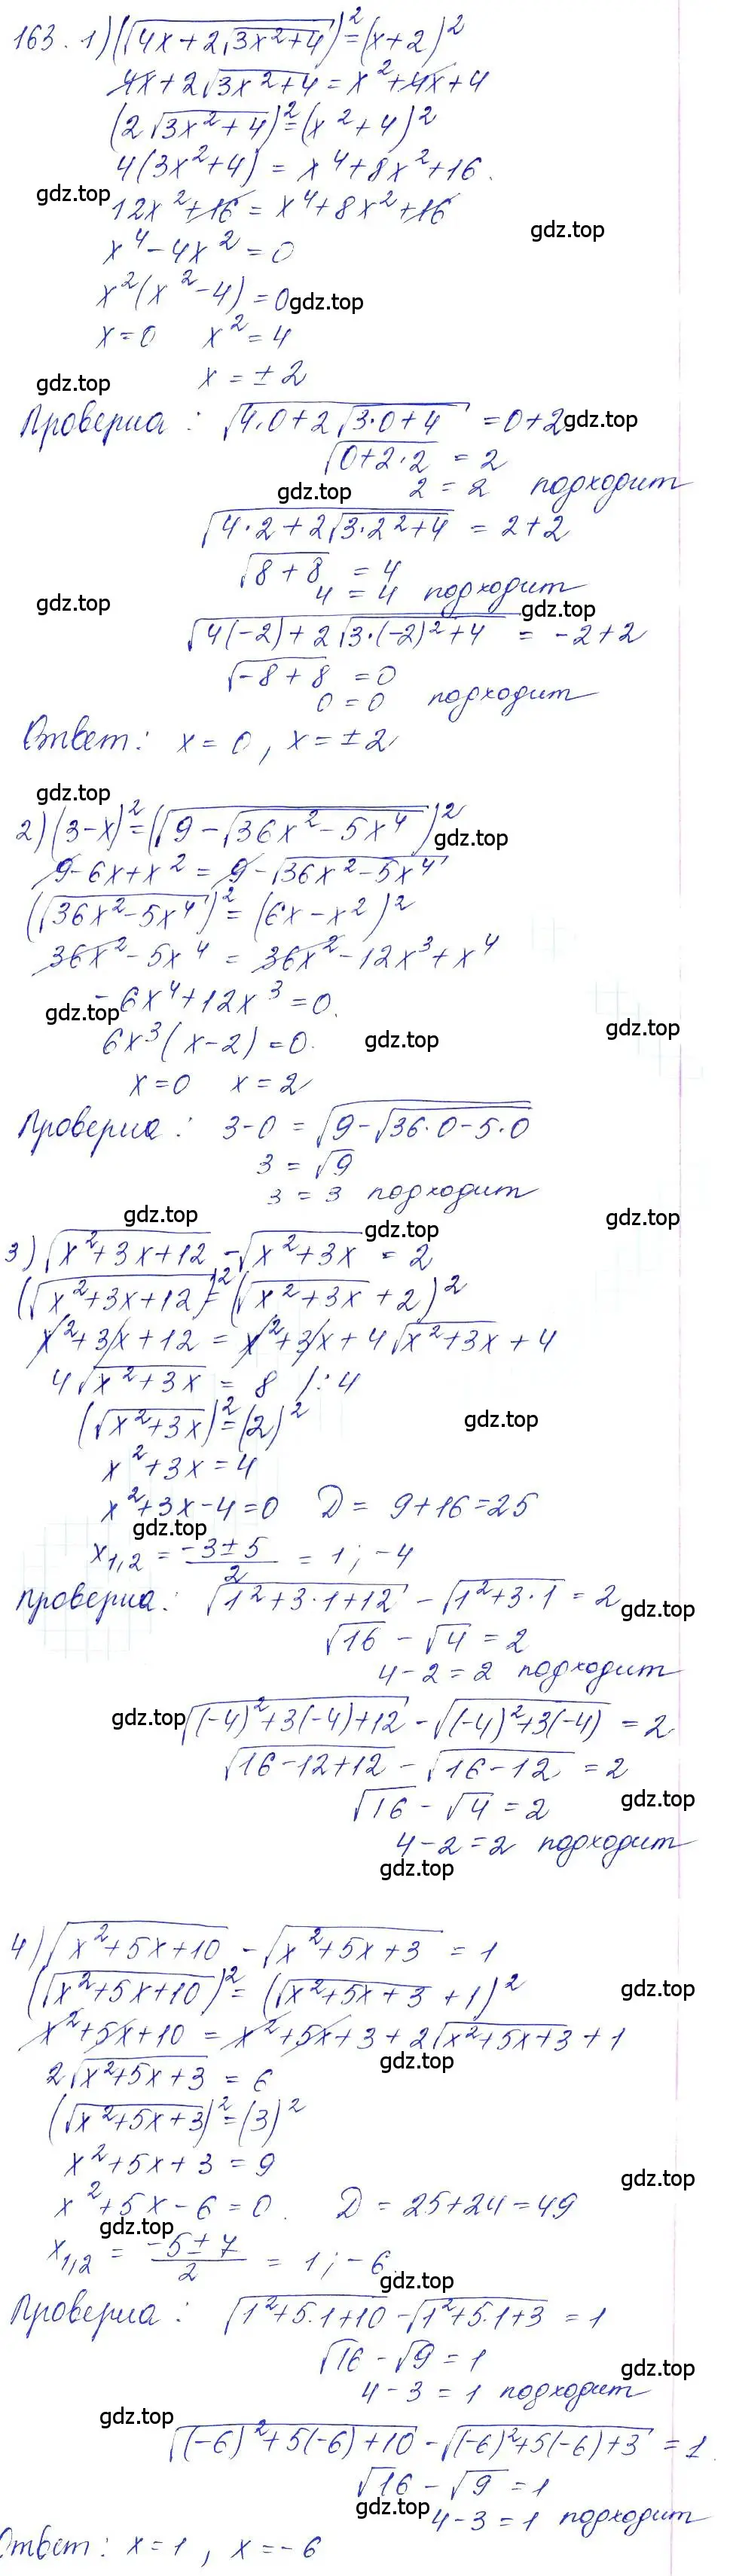 163. 1) (√(4x+2√(3x²+4)))²=(x+2)²
4x+2√(3x²+4)=x²+4x+4
(2√(3x²+4))²=(x²+4)²
4(3x²+4)=x⁴+8x²+16.
gdz.top
12x²+16=x⁴+8x²+16
gdz.top
x⁴-4x²=0
x²(x²-4)=0
gdz.top
x=0 x²=4
x=±2
gdz.top
Проверка: √(4·0+2√(3·0+4))=0+2
gdz.top
√(0+2·2)=2
2=2 подходит
gdz.top
√(4·2+2√(3·2²+4))=2+2
√(8+8)=4
4=4 подходит
gdz.top
gdz.top
√(4(-2)+2√(3·(-2)²+4))=-2+2
√(-8+8)=0
0=0 подходит
Ответ: x=0, x=±2
gdz.top
2) (3-x)²=(√(9-√(36x²-5x⁴)))²
gdz.top
9-6x+x²=9-√(36x²-5x⁴)
(√(36x²-5x⁴))²=(6x-x²)²
36x²-5x⁴=36x²-12x³+x⁴
-6x⁴+12x³=0.
gdz.top
gdz.top
6x³(x-2)=0.
gdz.top
x=0 x=2
Проверка: 3-0=√(9-√(36·0-5·0))
3=√9
3=3 подходит
gdz.top
gdz.top
gdz.top
3) √(x²+3x+12)-√(x²+3x)=2
(√(x²+3x+12))²=(√(x²+3x)+2)²
x²+3x+12=x²+3x+4√(x²+3x)+4
4√(x²+3x)=8 /:4
(√(x²+3x))²=(2)²
gdz.top
x²+3x=4
x²+3x-4=0 D=9+16=25
gdz.top
x₁,₂=(-3±5)/2=1;-4
Проверка: √(1²+3·1+12)-√(1²+3·1)=2
gdz.top
√16-√4=2
4-2=2 подходит
gdz.top
√((-4)²+3(-4)+12)-√((-4)²+3(-4))=2
√(16-12+12)-√(16-12)=2
√16-√4=2
gdz.top
4-2=2 подходит
gdz.top
4) √(x²+5x+10)-√(x²+5x+3)=1
(√(x²+5x+10))²=(√(x²+5x+3)+1)²
gdz.top
x²+5x+10=x²+5x+3+2√(x²+5x+3)+1
gdz.top
2√(x²+5x+3)=6
(√(x²+5x+3))²=(3)²
x²+5x+3=9
gdz.top
x²+5x-6=0. D=25+24=49
gdz.top
x₁,₂=(-5±7)/2=1;-6
gdz.top
Проверка: √(1²+5·1+10)-√(1²+5·1+3)=1
√16-√9=1
gdz.top
4-3=1 подходит
gdz.top
√((-6)²+5(-6)+10)-√((-6)²+5(-6)+3)=1.
√16-√9=1
gdz.top
4-3=1 подходит
Ответ: x=1, x=-6